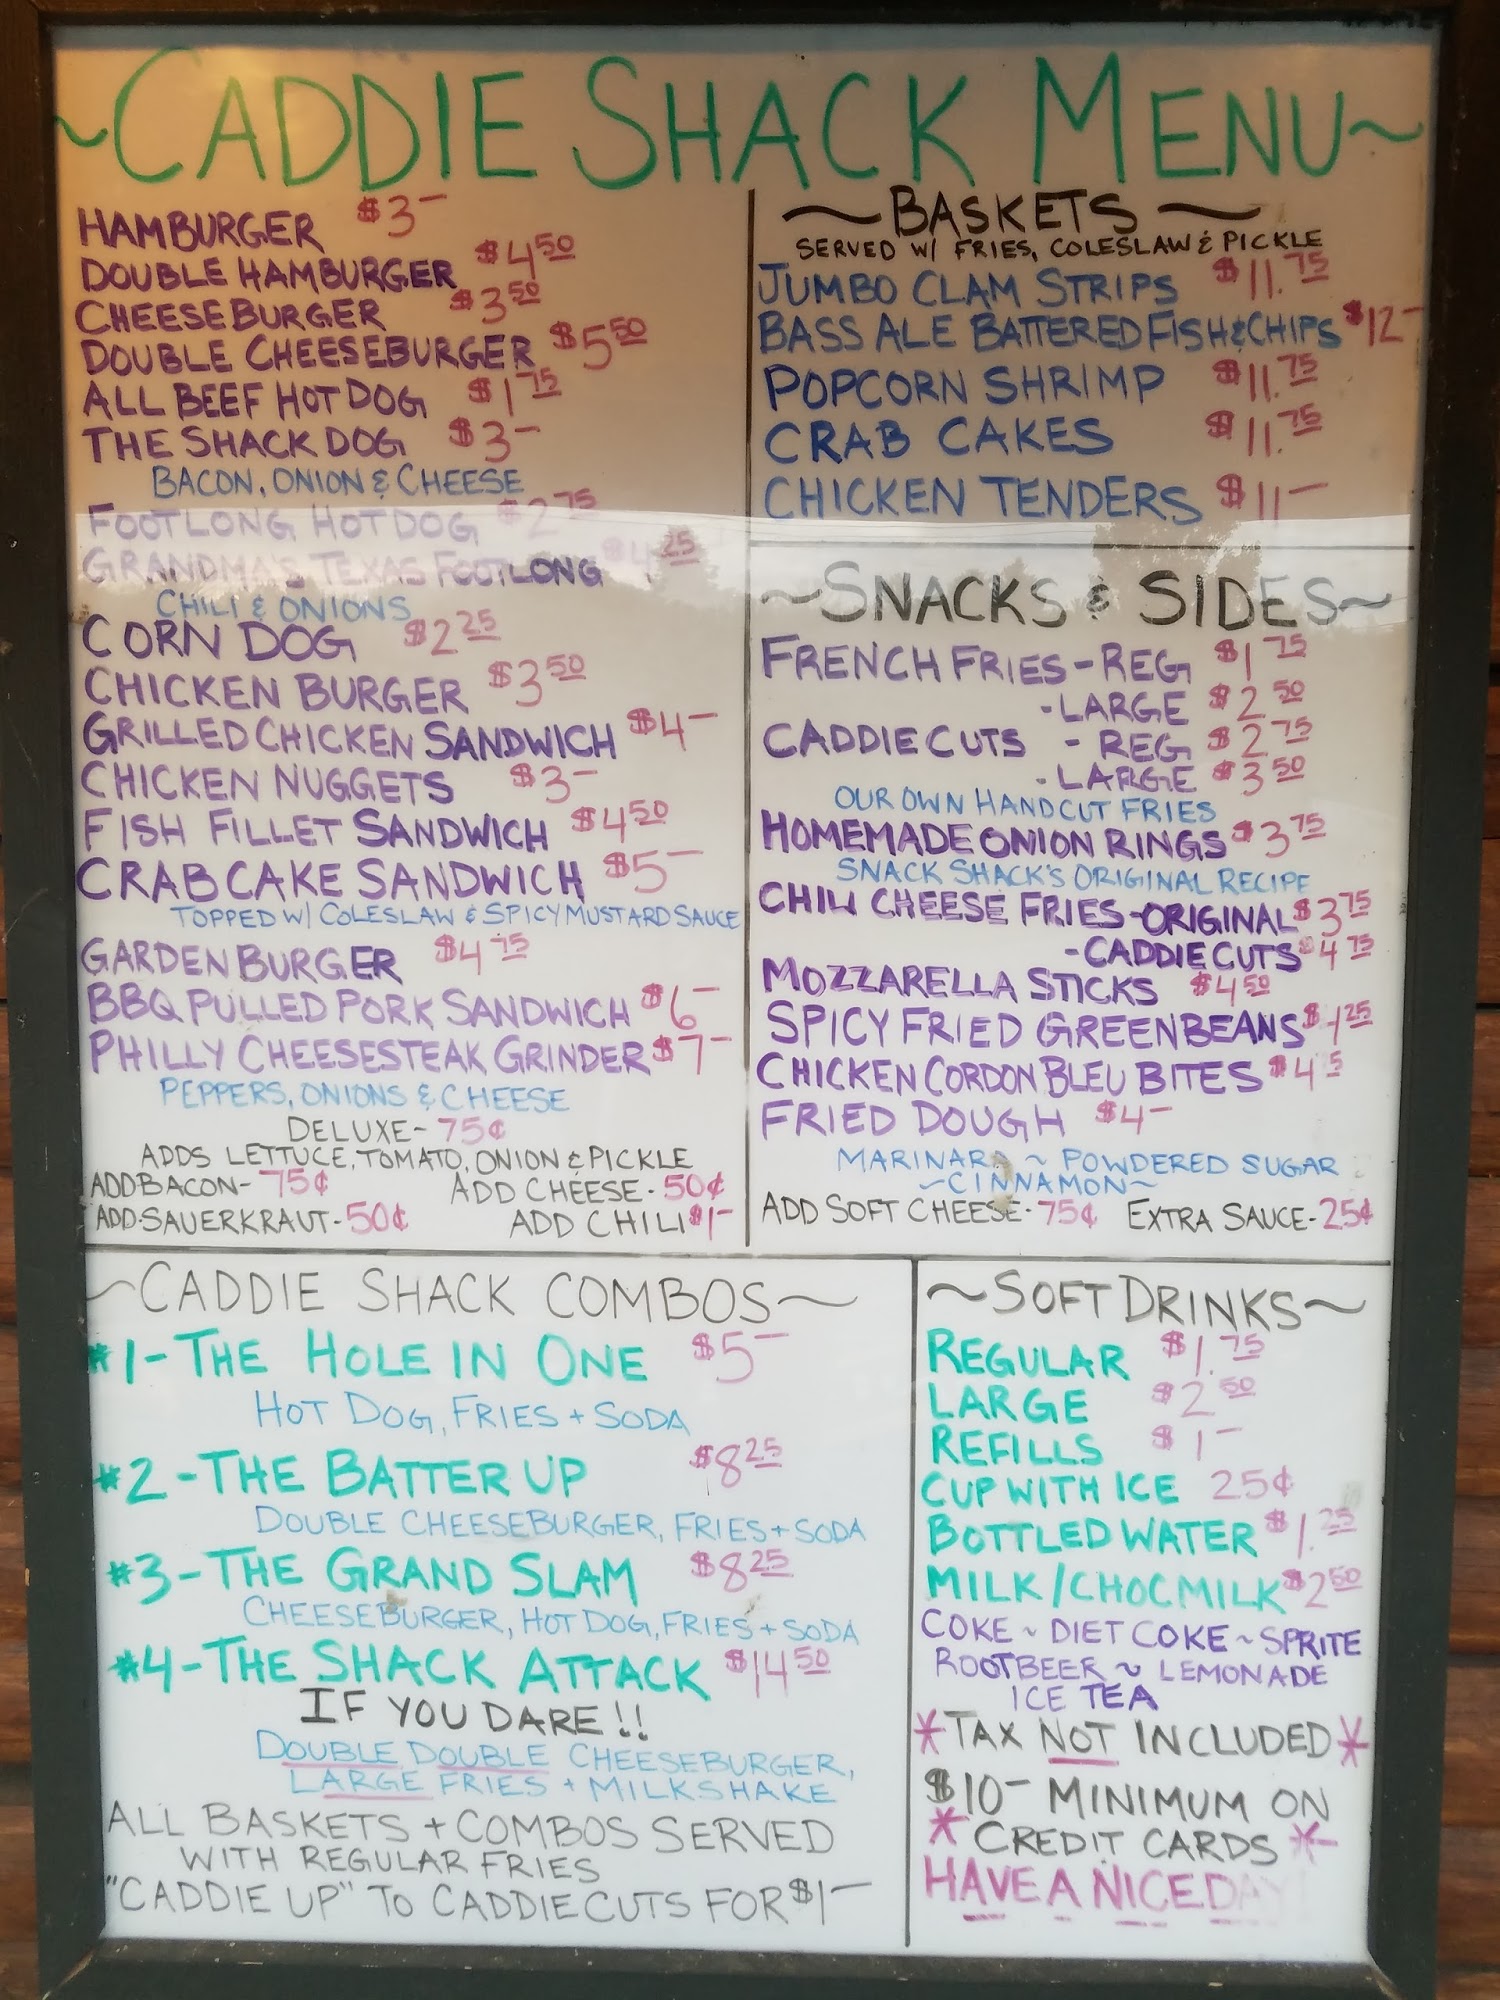 ~CADDIE SHACK MENU~
HAMBURGER $3—
DOUBLE HAMBURGER $4 50
CHEESEBURGER $3 50
DOUBLE CHEESEBURGER $5 50
ALL BEEF HOT DOG $1 75
THE SHACK DOG $3—
BACON, ONION & CHEESE
FOOTLONG HOT DOG $2 75
GRANDMA'S TEXAS FOOTLONG $4 25
CHILI & ONIONS
CORN DOG $2 25
CHICKEN BURGER $3 50
GRILLED CHICKEN SANDWICH $4—
CHICKEN NUGGETS $3—
FISH FILLET SANDWICH $4 50
CRAB CAKE SANDWICH $5—
TOPPED W/ COLESLAW & SPICY MUSTARD SAUCE
GARDEN BURGER $4 75
BBQ PULLED PORK SANDWICH $6—
PHILLY CHEESESTEAK GRINDER $7—
PEPPERS, ONIONS & CHEESE
DELUXE~ 75¢
ADDS LETTUCE, TOMATO, ONION & PICKLE
ADD BACON- 75¢ ADD CHEESE- 50¢
ADD SAUERKRAUT- 50¢ ADD CHILI $1—
~BASKETS~
SERVED W/ FRIES, COLESLAW & PICKLE
JUMBO CLAM STRIPS $11.75
BASS ALE BATTERED FISH & CHIPS $12—
POPCORN SHRIMP $11.75
CRAB CAKES $11.75
CHICKEN TENDERS $11—
~SNACKS & SIDES~
FRENCH FRIES - REG $1 75
-LARGE $2 50
CADDIE CUTS - REG $2 75
-LARGE $3 50
OUR OWN HANDCUT FRIES
HOMEMADE ONION RINGS $3 75
SNACK SHACK'S ORIGINAL RECIPE
CHILI CHEESE FRIES-ORIGINAL $3 75
-CADDIE CUTS $4 75
MOZZARELLA STICKS $4 50
SPICY FRIED GREEN BEANS $ 25
CHICKEN CORDON BLEU BITES $4
FRIED DOUGH $4—
MARINARA ~ POWDERED SUGAR
~CINNAMON~
ADD SOFT CHEESE- 75¢ EXTRA SAUCE- 25¢
~CADDIE SHACK COMBOS~
#1-THE HOLE IN ONE $5—
HOT DOG, FRIES + SODA
#2-THE BATTER UP $8 25
DOUBLE CHEESEBURGER, FRIES + SODA
#3-THE GRAND SLAM $8 25
CHEESEBURGER, HOT DOG, FRIES + SODA
#4-THE SHACK ATTACK $14 50
IF YOU DARE!!
DOUBLE DOUBLE CHEESEBURGER,
LARGE FRIES + MILKSHAKE
ALL BASKETS + COMBOS SERVED
WITH REGULAR FRIES
"CADDIE UP" TO CADDIE CUTS FOR $1—
~SOFT DRINKS~
REGULAR $1.75
LARGE $2 50
REFILLS $1—
CUP WITH ICE 25¢
BOTTLED WATER $1.25
MILK/CHOC MILK $2 50
COKE ~ DIET COKE ~ SPRITE
ROOTBEER ~ LEMONADE
ICE TEA
*TAX NOT INCLUDED*
$10— MINIMUM ON
*CREDIT CARDS*
HAVE A NICE DAY!